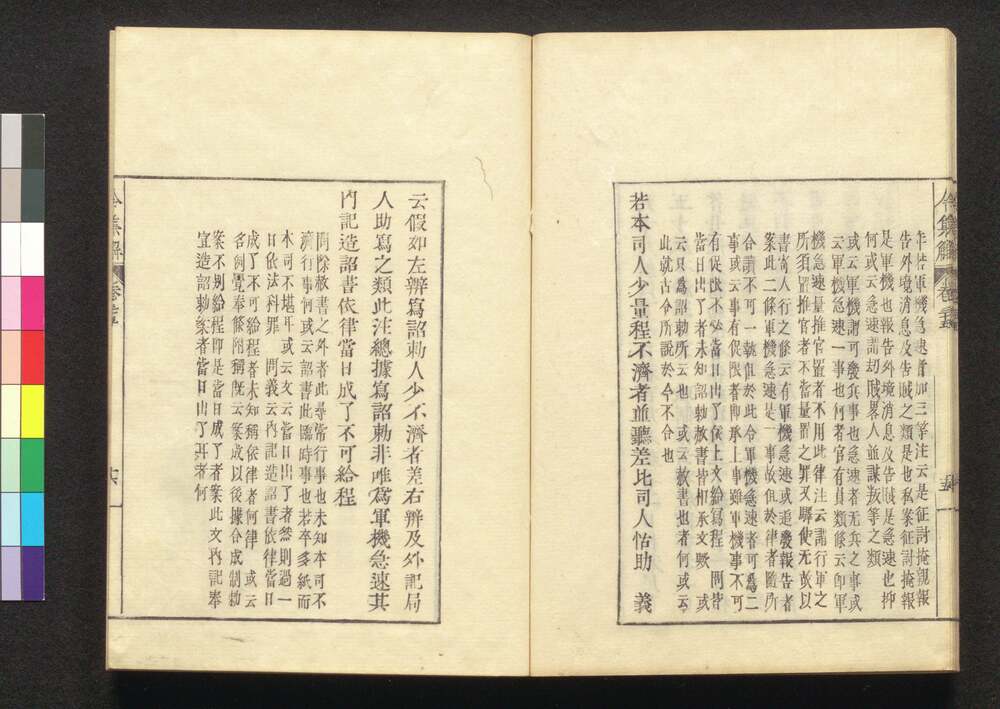 令集解 卷三十五
年若軍機急速者加三等注云是征討掩襲報
告外境消息及告賊之類是也私案征討掩報
是軍機也報告外境消息及告賊是急速也抑
何或云急速謂劫賊畧人並謀叛等之類
或云軍機謂可發兵事也急速者无兵之事或
云軍機急速一事也何者官有員類條云卽軍
機急速量推官置者不用此律注云謂行軍之
所須置推官者不當量置之罪又驛使无故以
書寄人行之條云有軍機急速或追發報告者
案此二條軍機急速是一事故但於律者隨所
合讀不可一執但於此令軍機急速者可爲二
事或云事有促限者卽承上事雖軍機事不可
有促限不必當日出了依上文給寫程 問皆
當日出了者未知詔勅赦書皆相承文歟 或
云只爲詔勅所云也 或云赦書也者何或云
此就古令所說於今不合也
若本司人少量程不濟者並聽差比司人怙助 義
云假如左辨寫詔勅人少不濟者差右辨及外記局
人助寫之類此注總據寫詔勅非唯爲軍機急速其
內記造詔書依律當日成了不可給程
問除赦書之外者此尋常行事也未知本司不
濟行事何或云詔書此臨時事也若卒多紙而
本司不堪耳或云文云當日出了者然則過一
日依法科罪 問義云內記造詔書依律當日
成了不可給程者未知稱依律者何律 或云
名例覺奉條附稱旣云案成以後據合成制勅
案不別給程抑是當日成了者案此文內記奉
宜造詔勅案者當日出了耳者何
令集解 卷三十五